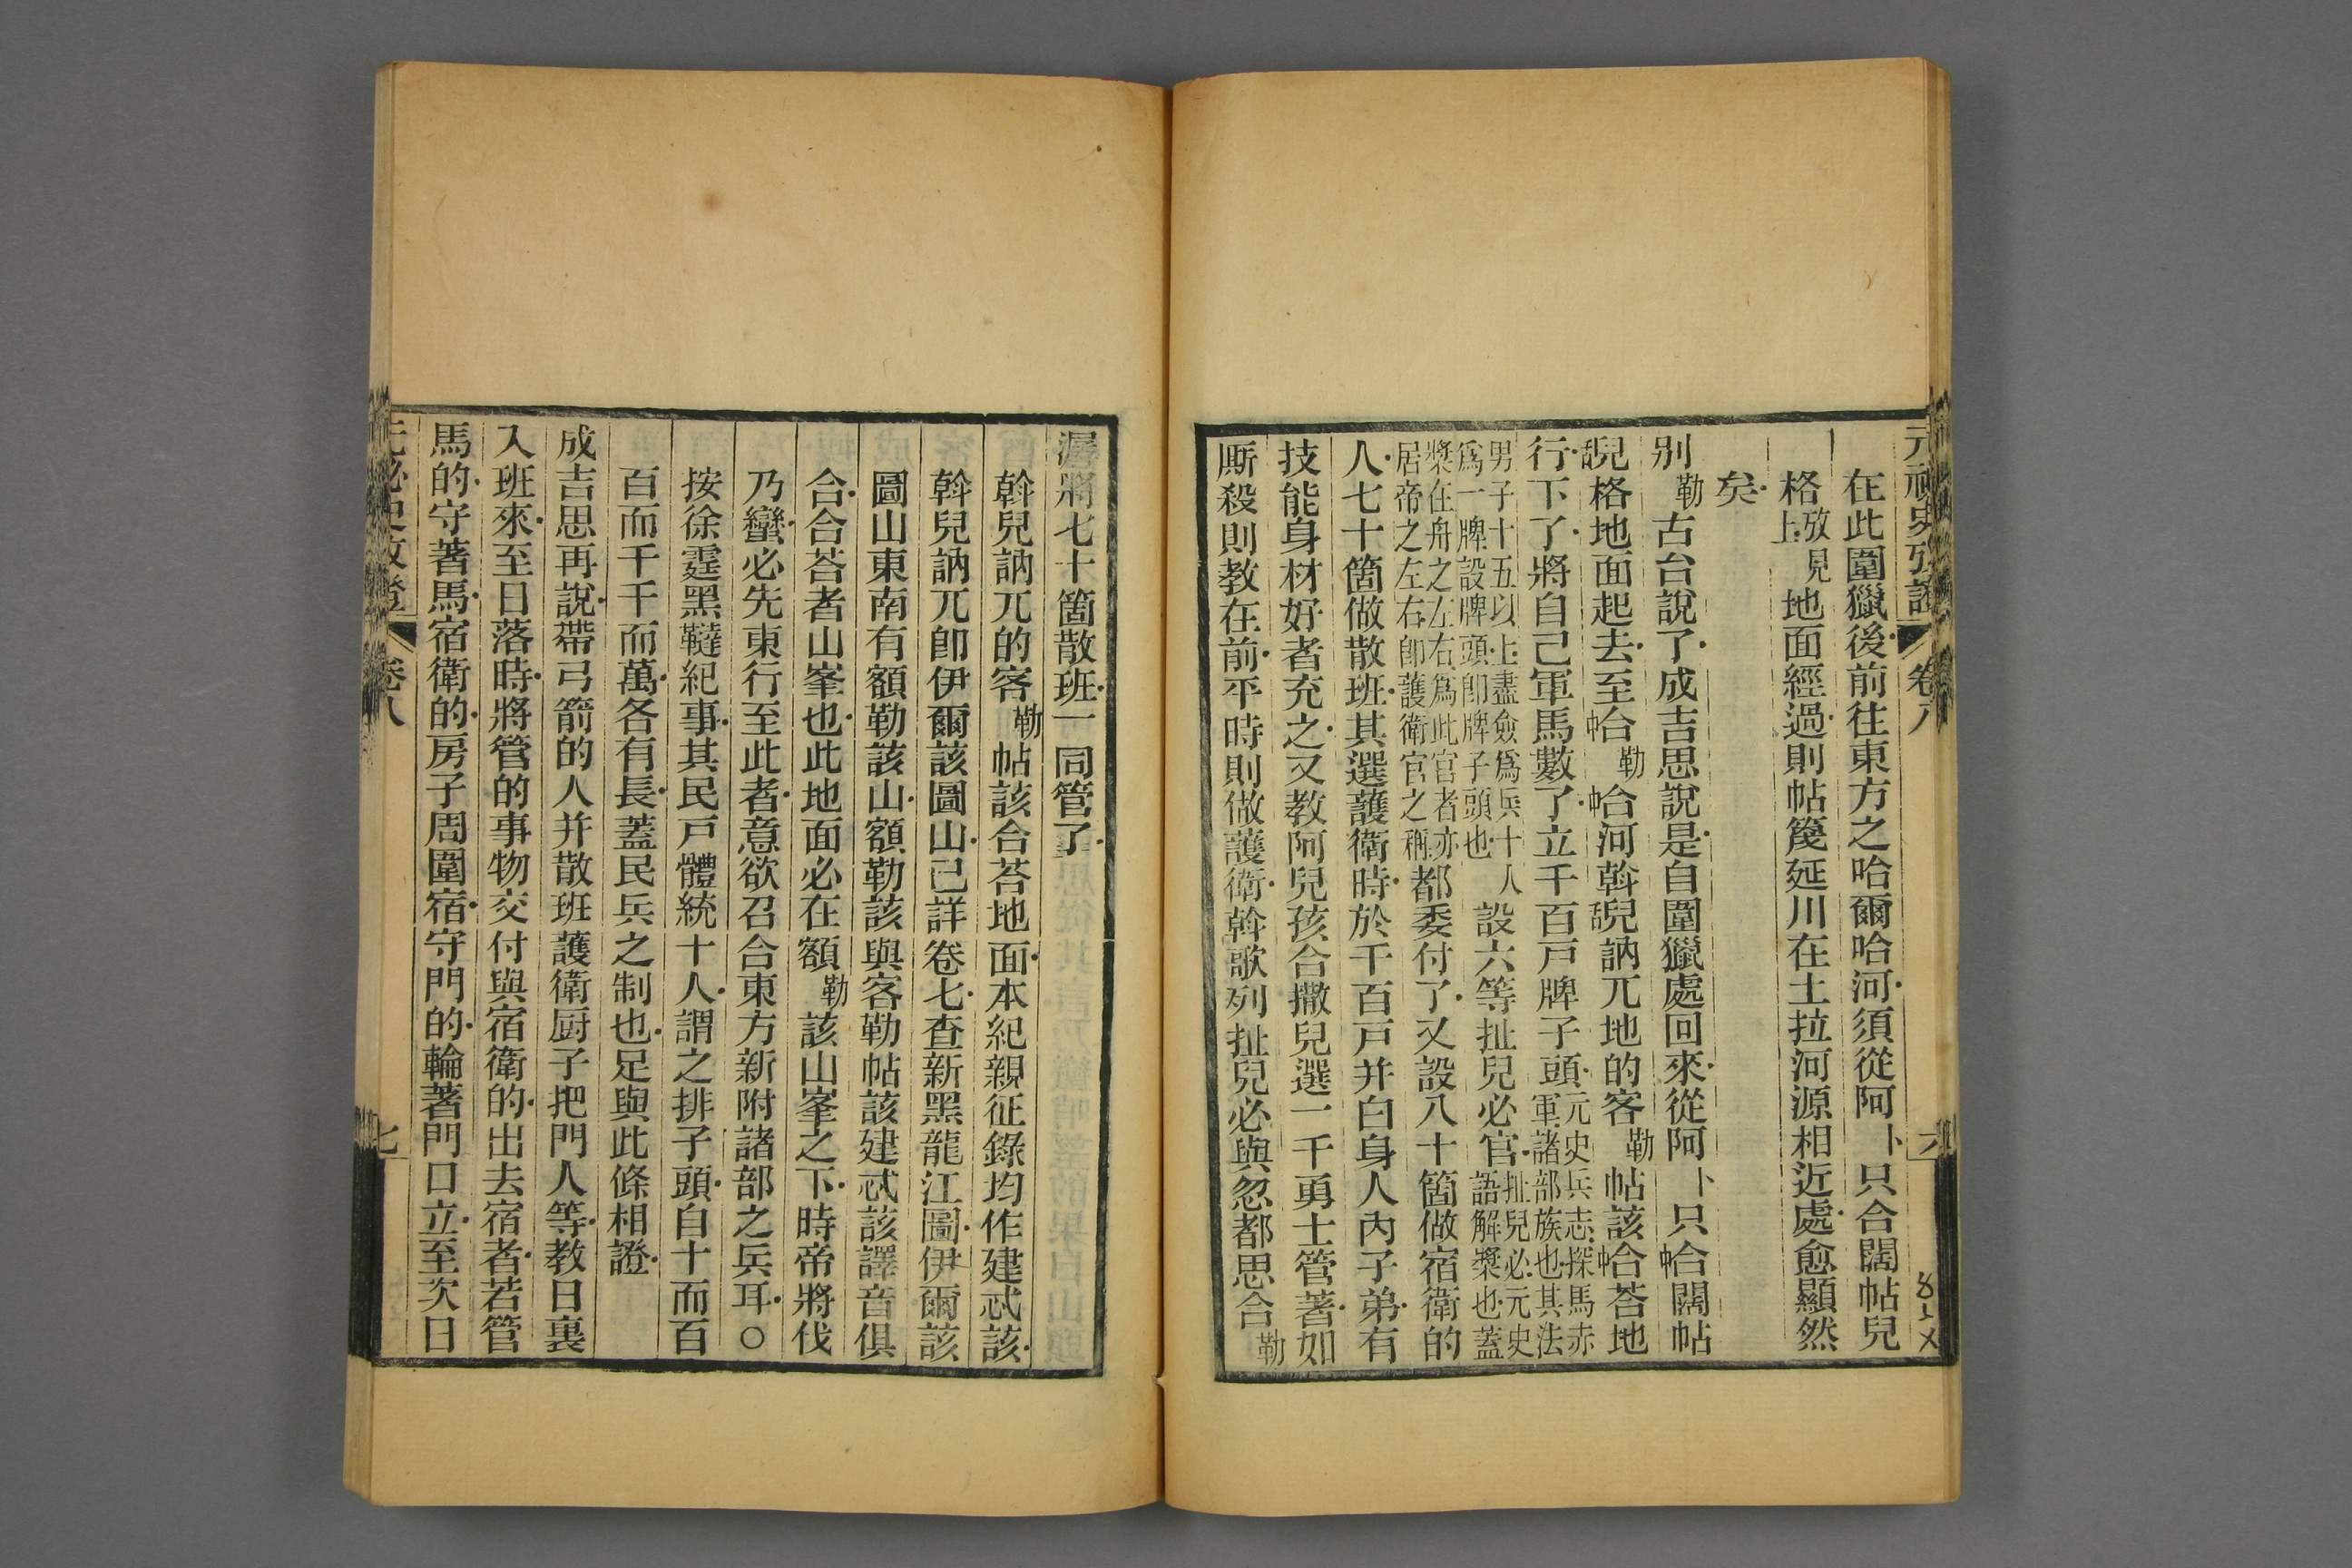 元祕史攷證 卷八 六
在此圍獵後前往東方之哈爾哈河須從阿卜只合闊帖兒
格上攷見地面經過則帖篾延川在土拉河源相近處愈顯然
矣
別勒古台說了成吉思說是自圍獵處回來從阿卜只帢闊帖
𧦧格地面起去至帢勒帢河斡𧦧訥兀地的客勒帖該帢荅地
行下了將自己軍馬數了立千百戸牌子頭元史兵志探馬赤軍諸部族也其法
男子十五以上盡僉爲兵十人爲一牌設牌頭卽牌子頭也設六等扯兒必官扯兒必元史語解槳也蓋
槳在舟之左右爲此官者亦居帝之左右卽護衛官之稱都委付了又設八十箇做宿衛的
人七十箇做散班其選護衛時於千百戸并白身人內子弟有
技能身材好者充之又教阿兒孩合撒兒選一千勇士管著如
厮殺則教在前平時則做護衛斡歌列扯兒必與忽都思合勒
潺將七十箇散班一同管了
斡兒訥兀的客勒帖該合荅地面本紀親征錄均作建忒該
斡兒訥兀卽伊爾該圖山已詳卷七查新黑龍江圖伊爾該
圖山東南有額勒該山額勒該與客勒帖該建忒該譯音俱
合合荅者山峯也此地面必在額勒該山峯之下時帝將伐
乃蠻必先東行至此者意欲召合東方新附諸部之兵耳○
按徐霆黑韃紀事其民戸體統十人謂之排子頭自十而百
百而千千而萬各有長蓋民兵之制也足與此條相證
成吉思再說帶弓箭的人并散班護衛厨子把門人等教日裏
入班來至日落時將管的事物交付與宿衛的出去宿者若管
馬的守著馬宿衛的房子周圍宿守門的輪著門口立至次日
元祕史攷證 卷八 七